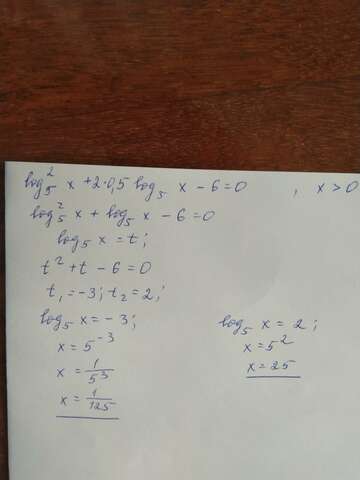 log₅² x + 2·0,5 log₅ x − 6 = 0 , x > 0
log₅² x + log₅ x − 6 = 0
log₅ x = t;
t² + t − 6 = 0
t₁ = −3; t₂ = 2;
log₅ x = −3;
x = 5⁻³
x = 1/5³
x = 1/125
log₅ x = 2;
x = 5²
x = 25